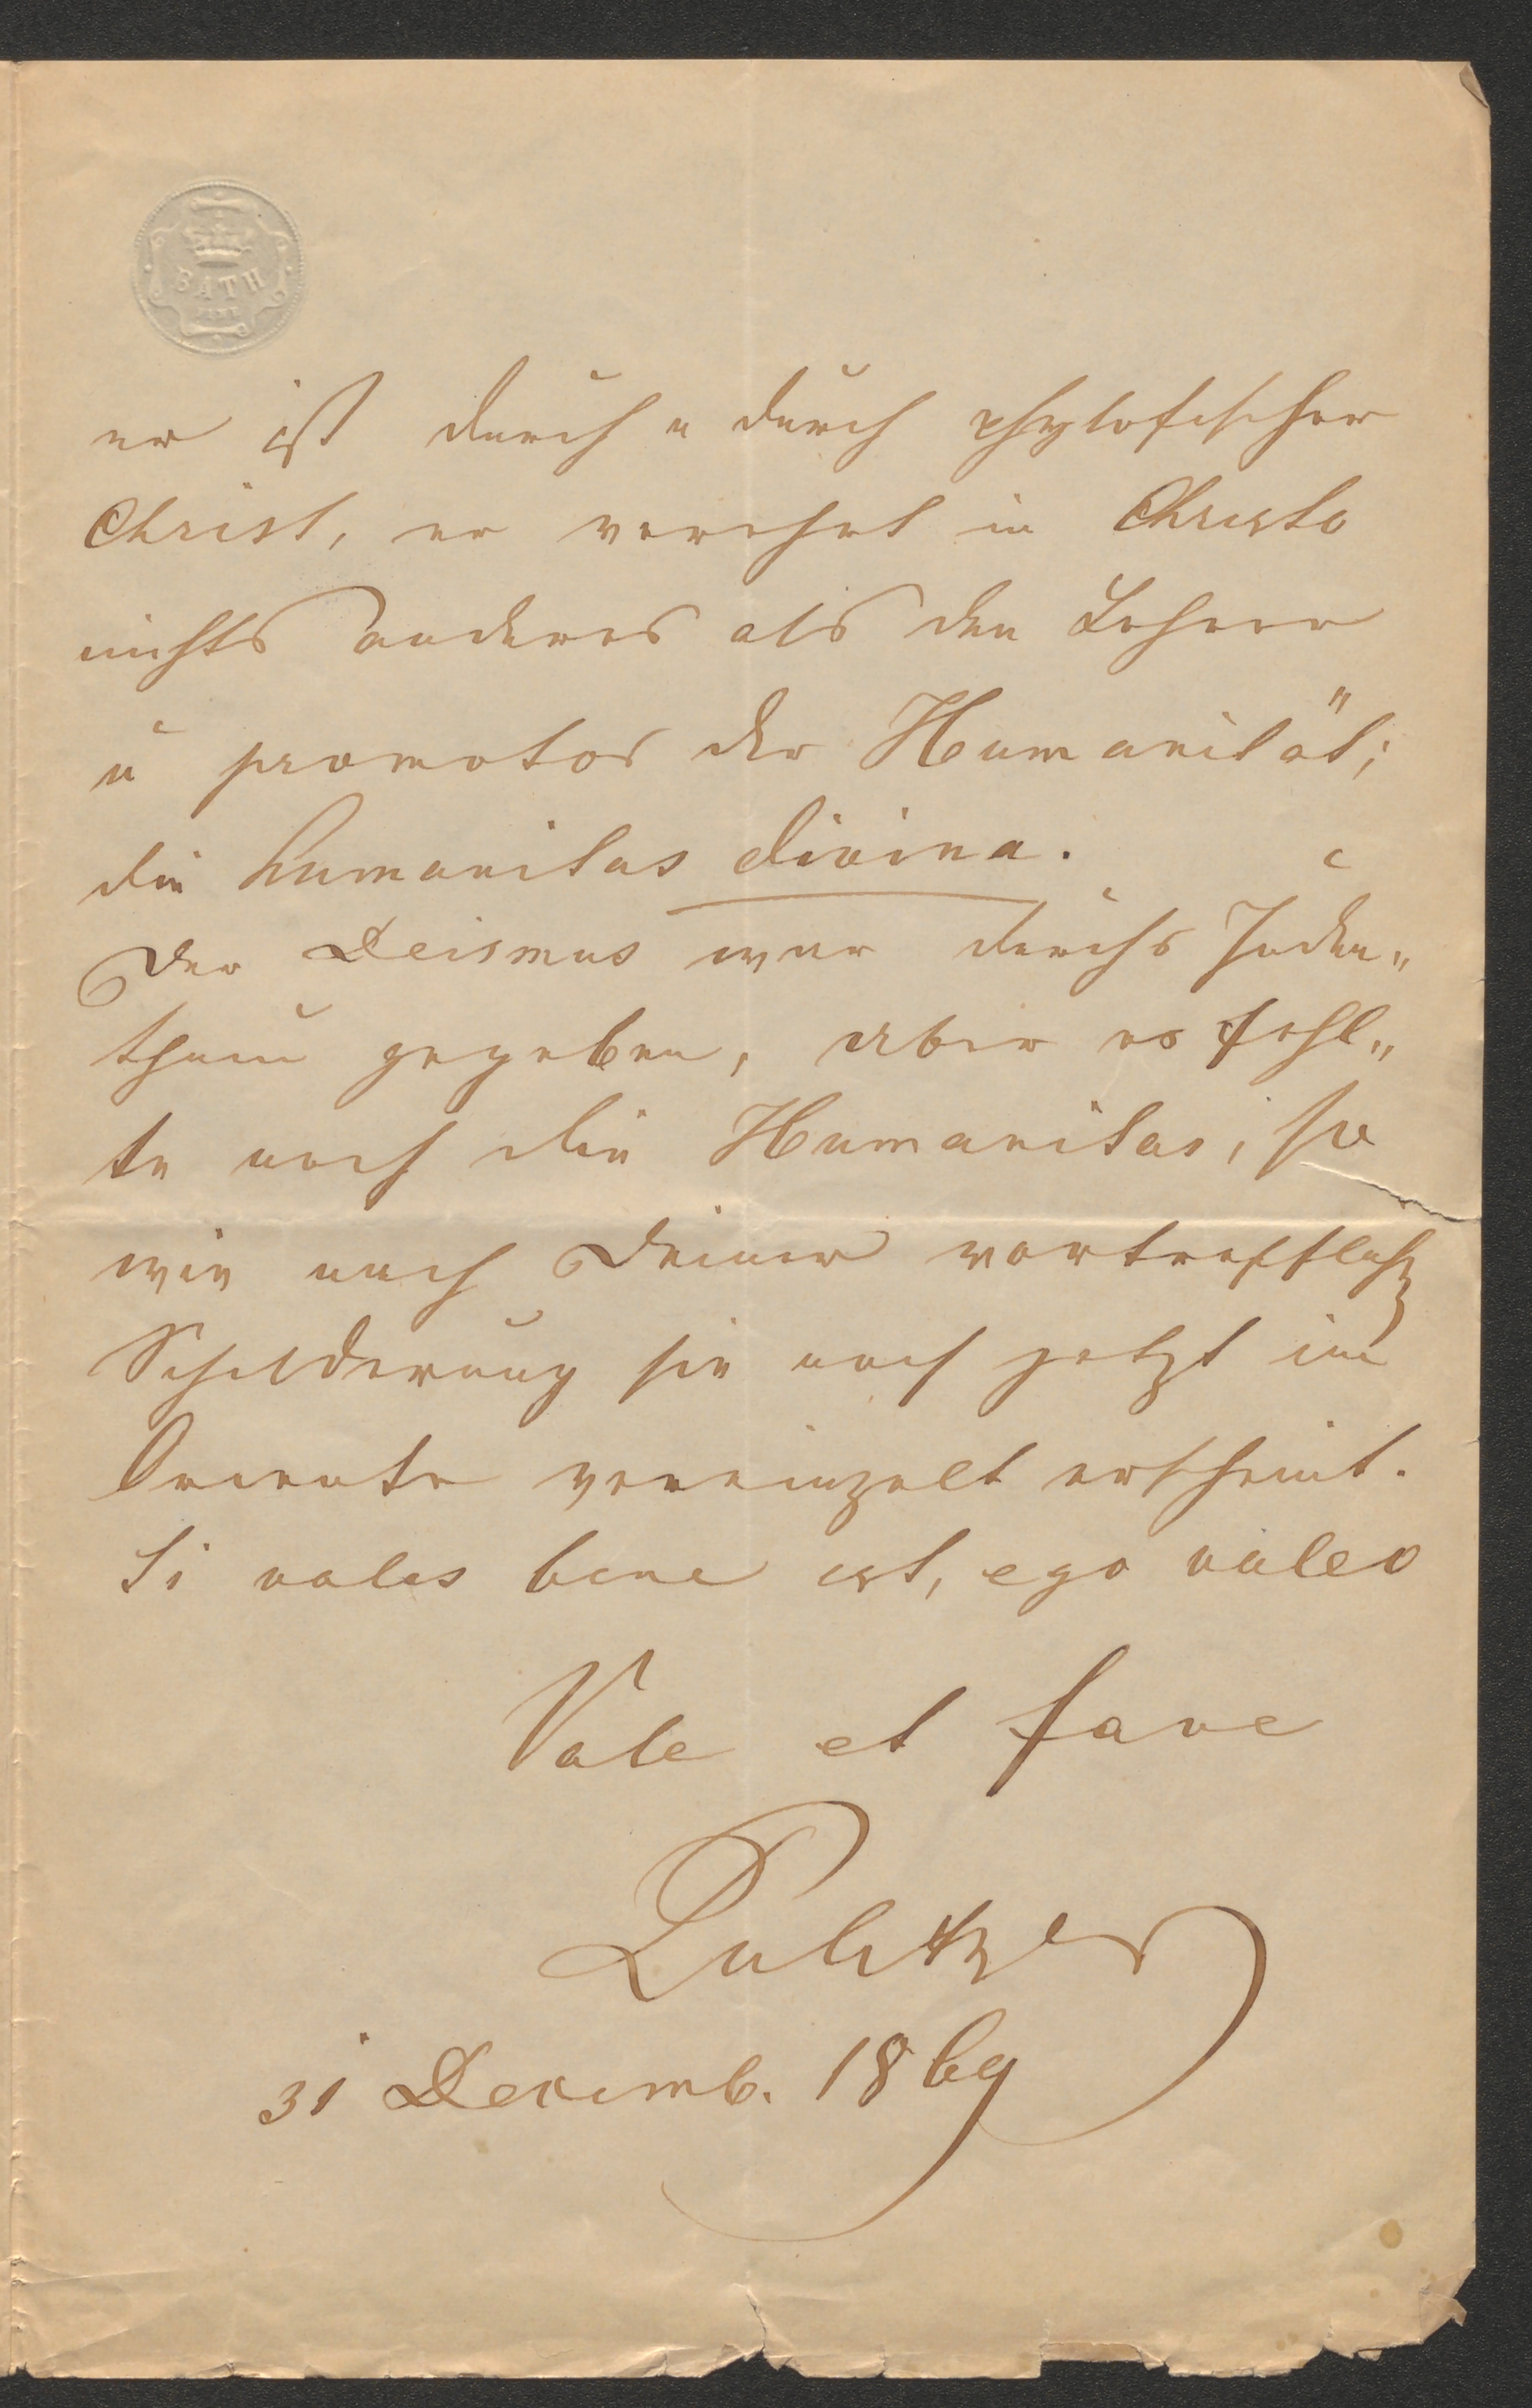 BATH
er ist durch u durch phylosofischer
Christ, er verehrt in Christo
nichts anderes als den Lehrer
u promotor der Humanität;
die humanitas divina.
Der Deismus war durchs Juden„
thum gegeben, aber es fehl„
te noch die Humanitas, so
wie nach Deiner vortrefflichen
Schilderung sie noch jetzt im
Oriente vereinzelt erscheint.
Si vales bene est, ego valeo
Vale et fave
Pulitzer
31 Decemb. 1869